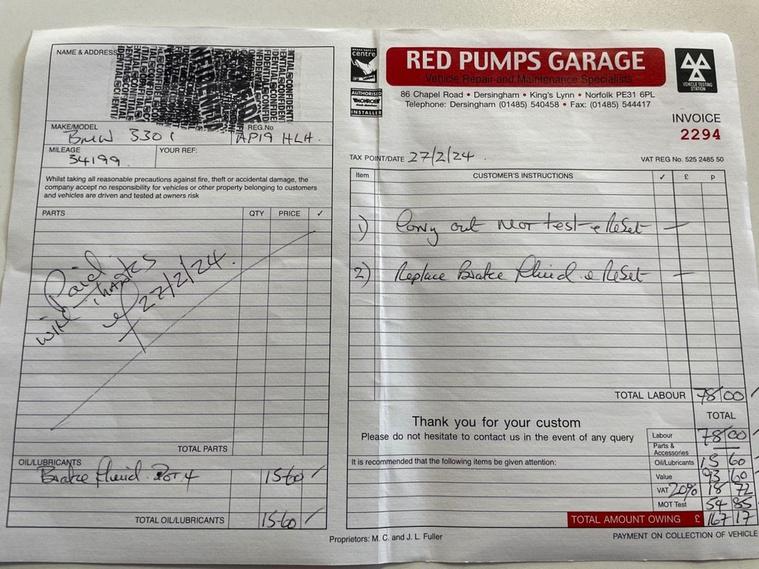 NAME & ADDRESS
MAKE/MODEL
BMW 330i
REG.No
AP19 HLA.
MILEAGE
34199.
YOUR REF:
Whilst taking all reasonable precautions against fire, theft or accidental damage, the
company accept no responsibility for vehicles or other property belonging to customers
and vehicles are driven and tested at owners risk
PARTS QTY PRICE ✓
Paid
with thanks
27/2/24.
TOTAL PARTS
OIL/LUBRICANTS
Brake Fluid. DOT 4 15-60
TOTAL OIL/LUBRICANTS 15-60
centre
AUTHORISED
INSTALLER
RED PUMPS GARAGE
Vehicle Repair and Maintenance Specialists
86 Chapel Road • Dersingham • King's Lynn • Norfolk PE31 6PL
Telephone: Dersingham (01485) 540458 • Fax: (01485) 544417
VEHICLE TESTING
STATION
INVOICE
2294
TAX POINT/DATE 27/2/24.
VAT REG No. 525 2485 50
Item CUSTOMER'S INSTRUCTIONS ✓ £ P
1) Carry out MOT test & Reset —
2) Replace Brake fluid & Reset —
TOTAL LABOUR 78 00
TOTAL
Thank you for your custom
Please do not hesitate to contact us in the event of any query
It is recommended that the following items be given attention:
Labour 78 00
Parts &
Accessories —
Oil/Lubricants 15 60
Value 93 60
VAT 20% 18 72
MOT Test 54 85
TOTAL AMOUNT OWING £ 167 17
Proprietors: M. C. and J. L. Fuller
PAYMENT ON COLLECTION OF VEHICLE